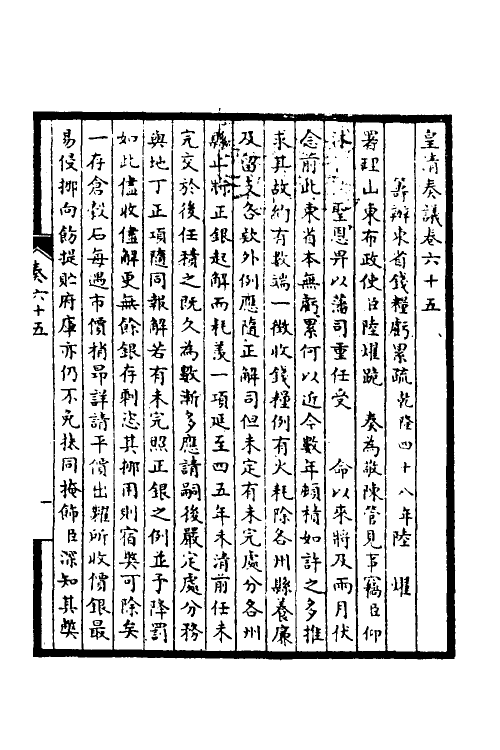 皇清奏議卷六十五
籌辦東省錢糧虧累疏乾隆四十八年陸　燿
署理山東布政使臣陸燿跪　奏為敬陳管見事竊臣仰
沐　聖恩畀以藩司重任受　命以來將及兩月伏
念前此東省本無虧累何以近今數年頓積如許之多推
求其故約有數端一徵收錢糧例有火耗除各州縣養廉
及留支各款外例應隨正解司但未定有未完處分各州
縣止將正銀起解而耗羨一項延至四五年未清前任未
完交於後任積之既久為數漸多應請嗣後嚴定處分務
與地丁正項隨同報解若有未完照正銀之例並予降罰
如此儘收儘解更無餘銀存剩恣其挪用則宿獘可除矣
一存倉穀石每遇市價稍昂詳請平價出糶所收價銀最
易侵挪向飭提貯府庫亦仍不免扶同掩飾臣深知其獘
奏六十五
一